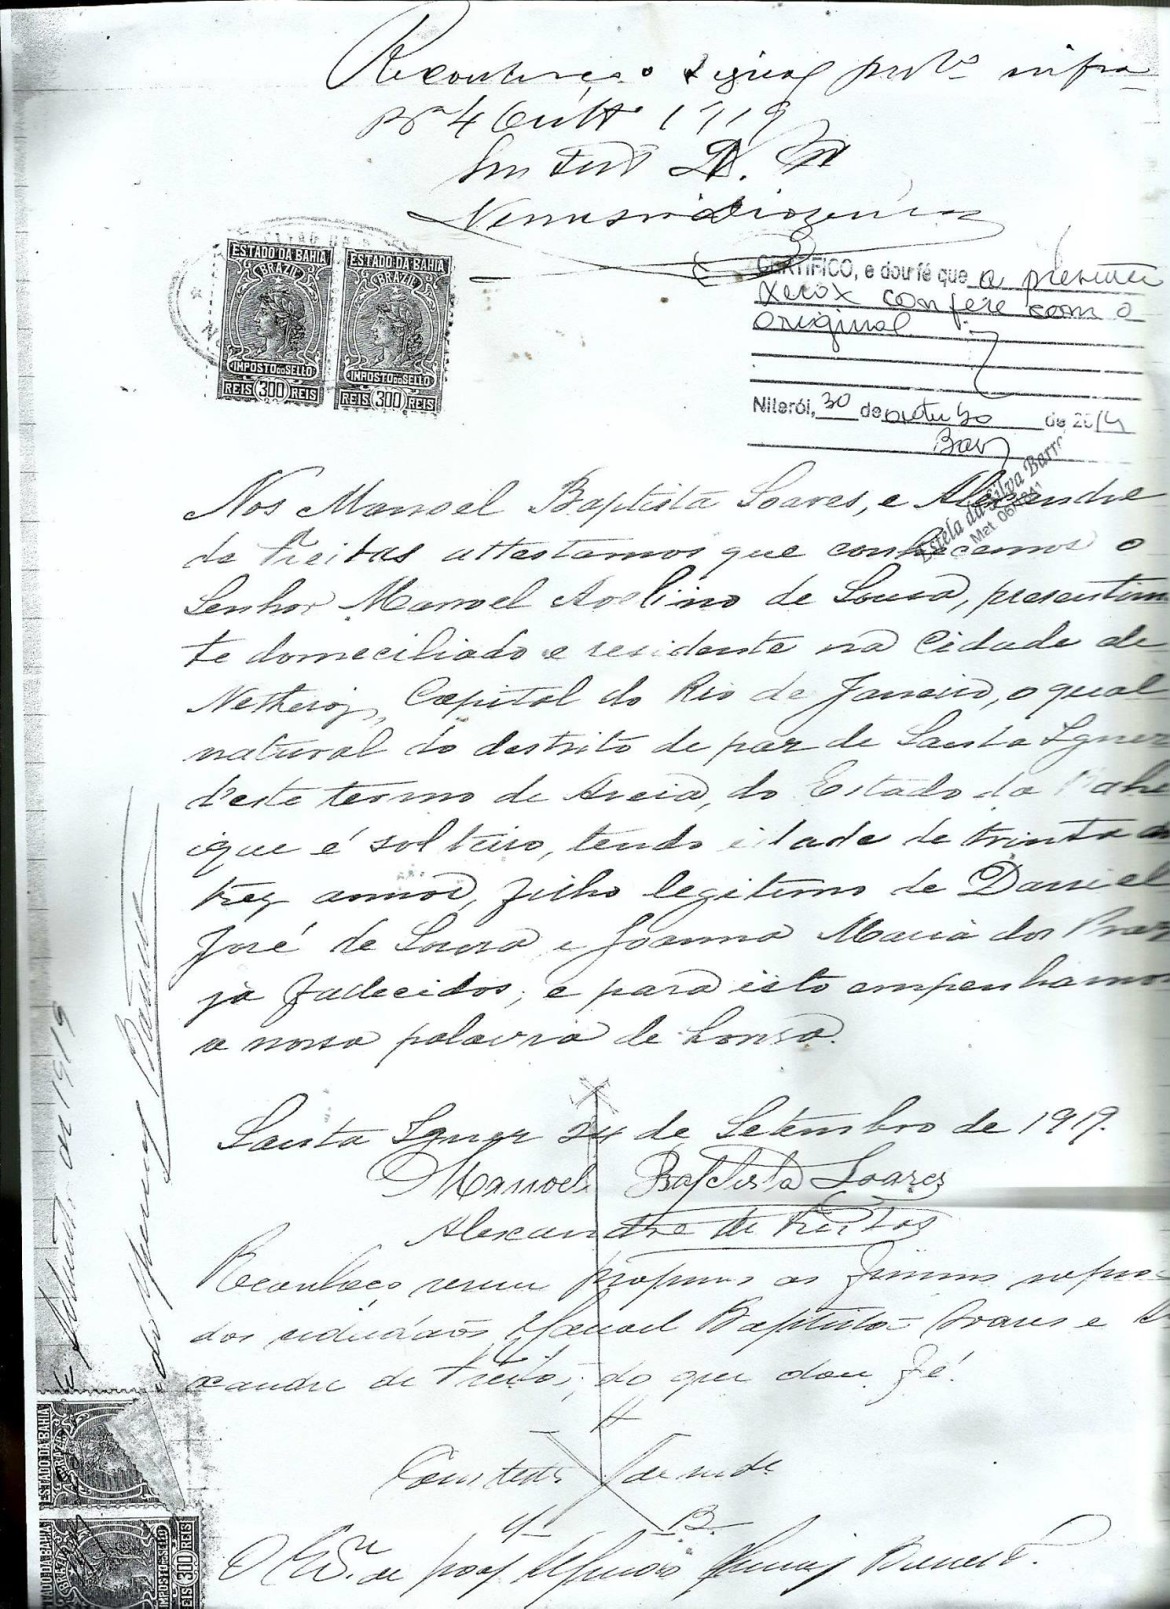 Reconheço o signal infra
4 1919
CERTIFICO, e dou fé que a presente
xerox confere com o
original
Niterói, 30 de outubro de 2014
Estela da Silva Barr
Mat.
ESTADO DA BAHIA
BRAZIL
IMPOSTO DO SELLO
REIS 300 REIS
ESTADO DA BAHIA
BRAZIL
IMPOSTO DO SELLO
REIS 300 REIS
Nos Manoel Baptista Soares, e Alexandre
de Freitas attestamos que conhecemos o
Senhor Manoel Avelino de Souza, presentim
te domeciliado e residente na Cidade de
Netheroy, Capital do Rio de Janeiro, o qual
natural do destrito de paz de Santa Ignez
d'este termo de Areia, do Estado da Bahi
que é solteiro, tendo idade de trinta e
trez annos, filho legitimo de Daniel
José de Souza e Joanna Maria dos Praz
ja fallecidos; e para isto empenhamos
a nossa palavra de honra.
Santa Ignez 24 de Setembro de 1919.
Manoel Baptista Soares
Alexandre de Freitas
Reconheço serem proprias as firmas supra
dos cidadãos Manoel Baptista Soares e
xandre de Freitas, do que dou fé.
Em testº da verde
de 1919
ESTADO DA BAHIA
ESTADO DA BAHIA
BRAZIL
IMPOSTO DO SELLO
REIS 300 REIS
O de paz